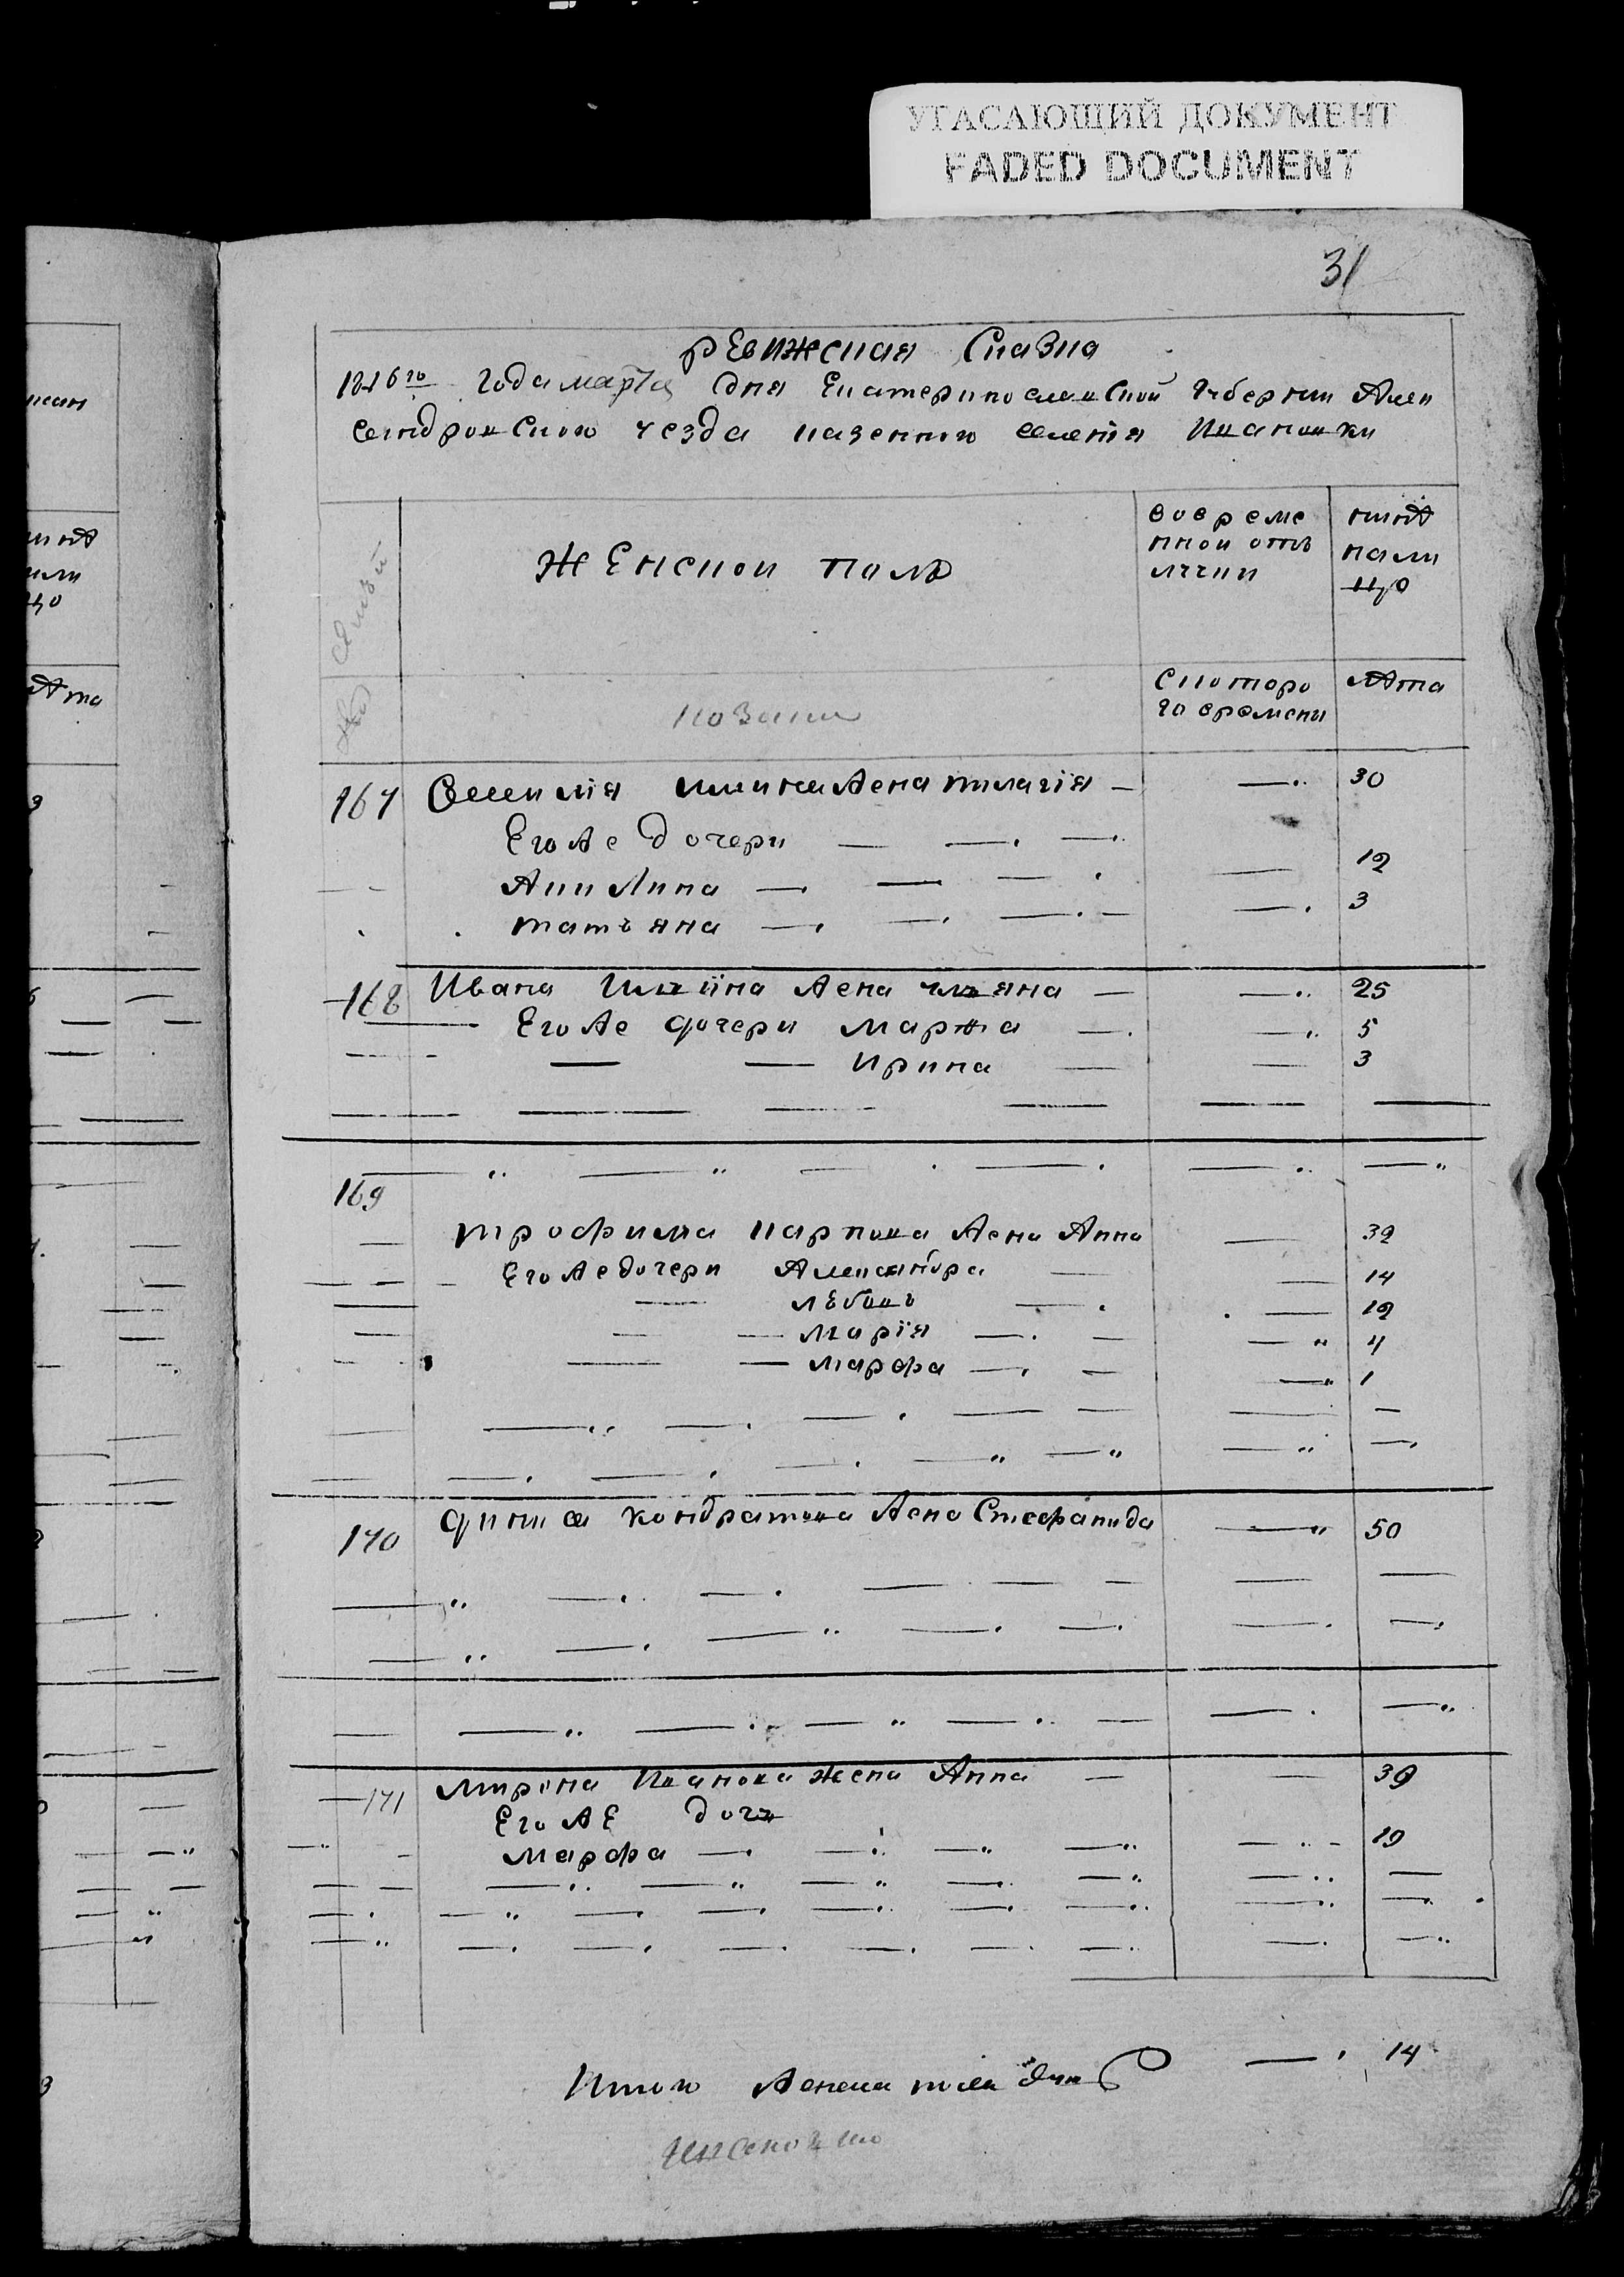 УГАСАЮЩИЙ ДОКУМЕНТ
FADED DOCUMENT
31
ревижская Сказка
1816го года марта дня Екатеринославской губернии Алек
сандровского уезда казенного селения Ивановки
женской полъ
вовреме
нной отъ
лучки
нынѣ
нали
цо
№ семьи
скоторо
го времени
лѣта
167 жена пилагія — 30
Его же дочери
Акилина — 12
татьяна — 3
168 Ивана жена ульяна — 25
Его же дочери марѳа — 5
Ирина — 3
169
трофима карпова жена Анна — 39
Его же дочери Александра — 14
лѣбовь — 12
марія — 4
марфа — 1
170 дениса кондратова жена Стефанида — 50
171 мирона Иванова жена Анна — 39
Его же дочь
марфа — 19
Итого женска пола душ — 14